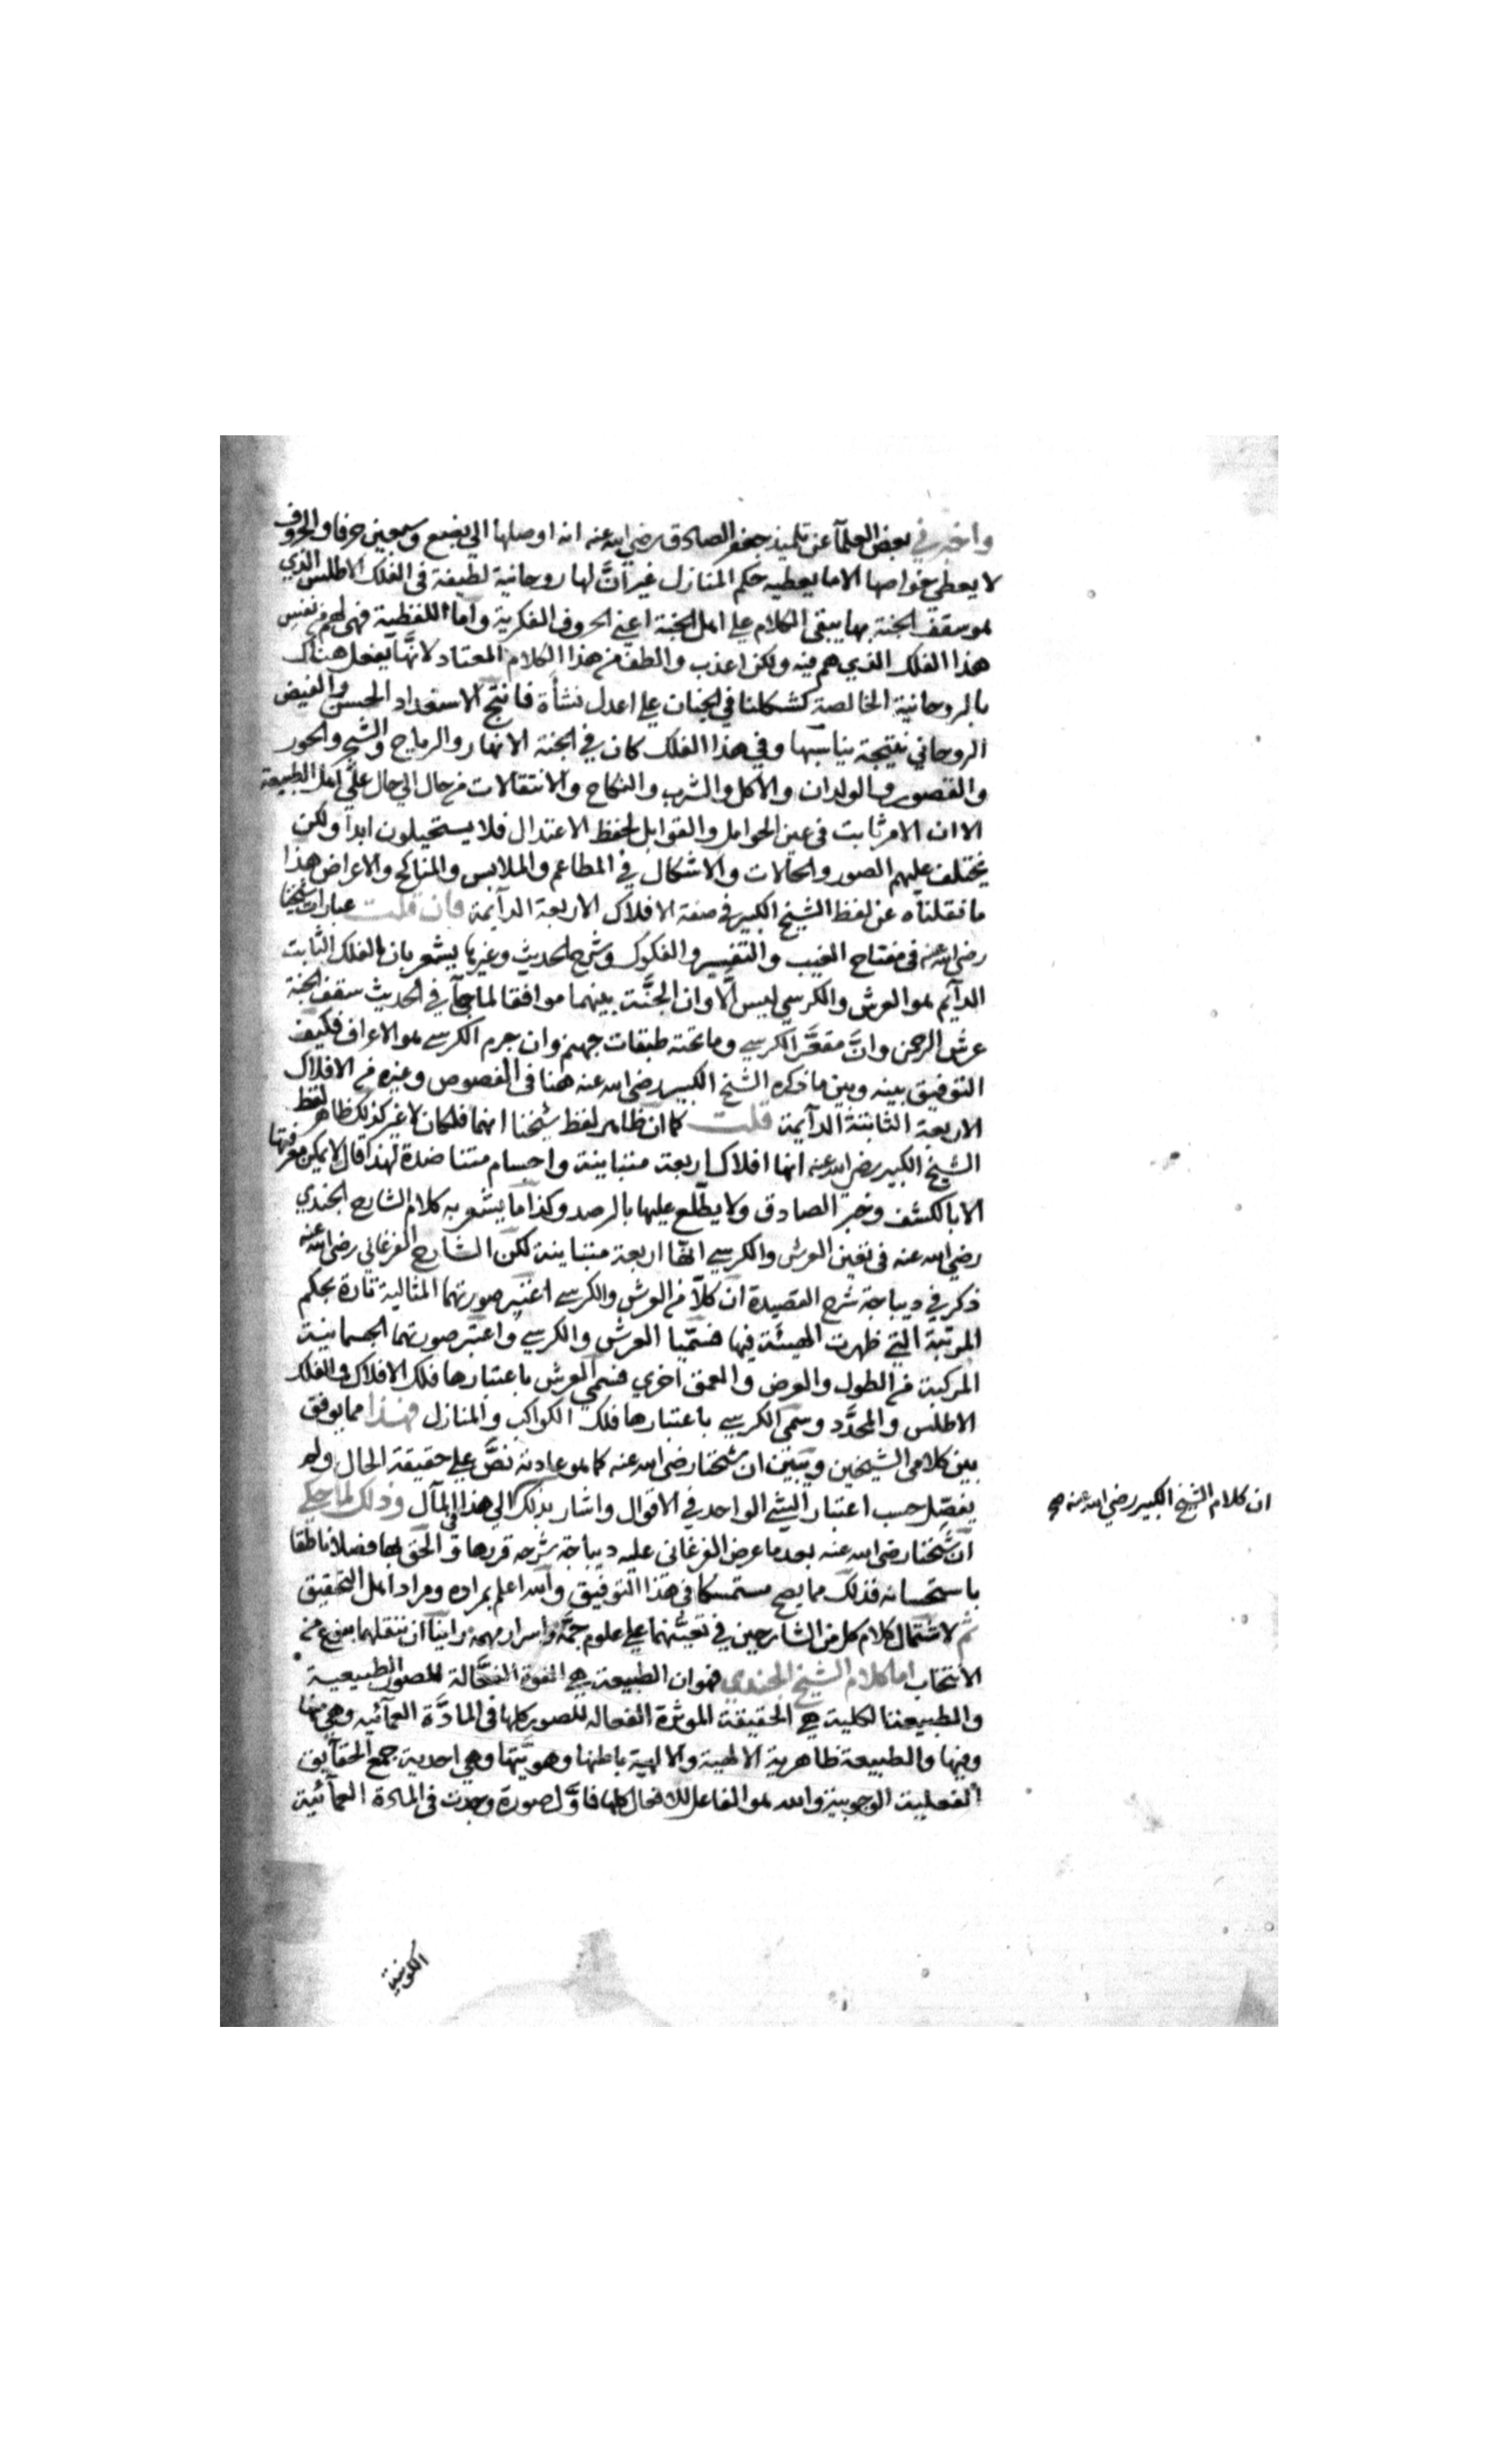 واخبرني بعض العلمآ عن تلميذ جعفر الصادق رضي الله عنه انه اوصلها الي بضع وسبعين حرفا والحروف
لا يعطي خواصها الا ما يعطيه حكم المنازل غير انَّ لها روحانية لطيفة في الفلك الاطلس الذي
هو سقف الجنة بها يبقى الكلام علي اهل الجنة اعني الحروف الفكرية واما اللفظية فهي لهم من نفس
هذا الفلك الذي هم فيه ولكن اعذب والطف من هذا الكلام المعتاد لانها يفعل هناك
بالروحانية الخالصة كشكلنا في الجنات علي اعدل نشأة فانتج الاستعداد الحسن والفيض
الروحاني نتيجة يناسبها وفي هذا الفلك كان في الجنة الانهار والرياح والشجر والحور
والقصور والولدان والاكل والشرب والنكاح والانتقالات من حال الي حال علي اهل الطبيعة
الا ان الامر ثابت في عين الحوامل والقوابل لحفظ الاعتدال فلا يستحيلون ابدا ولكن
يختلف عليهم الصور والحالات والاشكال في المطاعم والملابس والمناكح والاعراض هذا
ما نقلناه عن لفظ الشيخ الكبير في صفة الافلاك الاربعة الدآئمة فان قلت عبارات شيخنا
رضي الله عنه في مفتاح الغيب والتفسير والفكوك وشرح الحديث وغيرها يشعر بان الفلك الثابت
الدآئم هو العرش والكرسي ليس الّا وان الجنَّة بينهما موافقا لما جآ في الحديث سقف الجنة
عرش الرحمن وانَّ مقعَّر الكرسي وما تحته طبقات جهنم وان جرم الكرسي هو الاعراف فكيف
التوفيق بينه وبين ما ذكره الشيخ الكبير رضي الله عنه هنا في الفصوص وغيره من الافلاك
الاربعة الثابتة الدآيمة قلت كما ان ظاهر لفظ شيخنا انهما فلكان لا غير كذلك ظاهر لفظ
الشيخ الكبير رضي الله عنه انها افلاك اربعة متباينة واجسام متناضدة لهذا قال لا يمكن معرفتها
الا بالكشف وخبر الصادق ولا يطّلع عليها بالرصد وكذا ما يشعر به كلام الشارح الجندي
رضي الله عنه في تعين العرش والكرسي انها اربعة متباينة لكن الشارح الفرغاني رضي الله عنه
ذكر في ديباجة شرح القصيدة ان كلّا من العرش والكرسي اعتبر صورتهما المثالية تارة بحكم
المرتبة التي ظهرت الهيئة فيها فسمّيا العرش والكرسي واعتبر صورتهما الجسمانية
المركبة من الطول والعرض والعمق اخري فسمي العرش باعتبارها فلك الافلاك والفلك
الاطلس والمحدَّد وسمي الكرسي باعتبارها فلك الكواكب والمنازل فهذا مما يوفق
بين كلامي الشيخين ويبين ان شيخنا رضي الله عنه كما هو عادته نصَّ علي حقيقة الحال ولم
يفصّل حسب اعتبار الشيء الواحد في الاقوال واشار بذلك الي هذا المآل وذلك لما حكي
ان كلام الشيخ الكبير رضي الله عنه صح
ان شيخنا رضي الله عنه بعد ما عرض الفرغاني عليه ديباجة شرحه قررها والحق بها فصلا ناطقا
باستحسانه فذلك مما يصح مستمسكا في هذا التوفيق والله اعلم بمراده ومراد اهل التحقيق
ثم لاشتمال كلام كل من الشارحين في تعينهما علي علوم جمَّة واسرار مهمة راينا ان ننقلهما بنوع من
الانتخاب اما كلام الشيخ الجندي فهو ان الطبيعة هي القوة الفعَّالة للصور الطبيعية
والطبيعة الكلية هي الحقيقة الموثرة الفعاله للصور كلها في المادَّة العمآئيه وهي منها
وفيها والطبيعة ظاهرية الالهية والالهية باطنها وهويَّتها وهي احدية جمع الحقآيق
الفعلية الوجوبية والله هو الفاعل للافعال كلها فاوَّل صورة وجدت في المادة العمآئية
الكونية